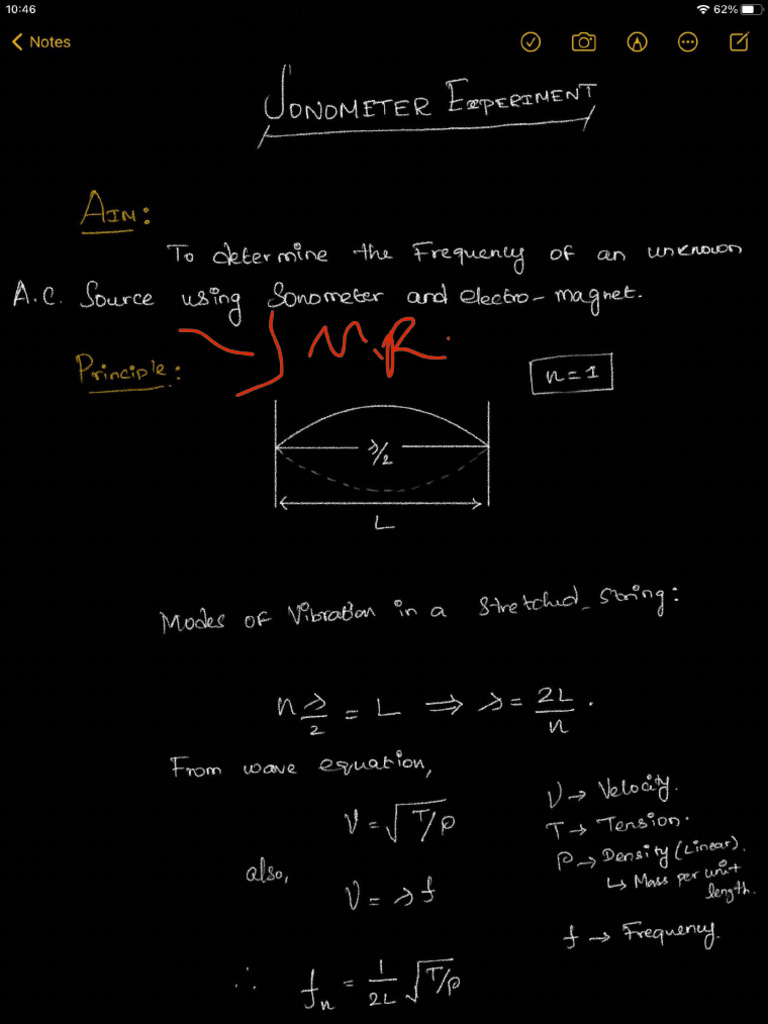 10:46
62%
Notes
SONOMETER EXPERIMENT
AIM:
To determine the Frequency of an unknown
A.C. Source using Sonometer and electro-magnet.
M.R.
Principle:
n=1
λ/2
L
Modes of Vibration in a stretched string:
n λ/2 = L ⟹ λ = 2L/n .
From wave equation,
V = √T/ρ
also,
V = λf
∴ fn = 1/2L √T/ρ
V → Velocity.
T → Tension.
ρ → Density (Linear).
↳ Mass per unit
length.
f → Frequency.